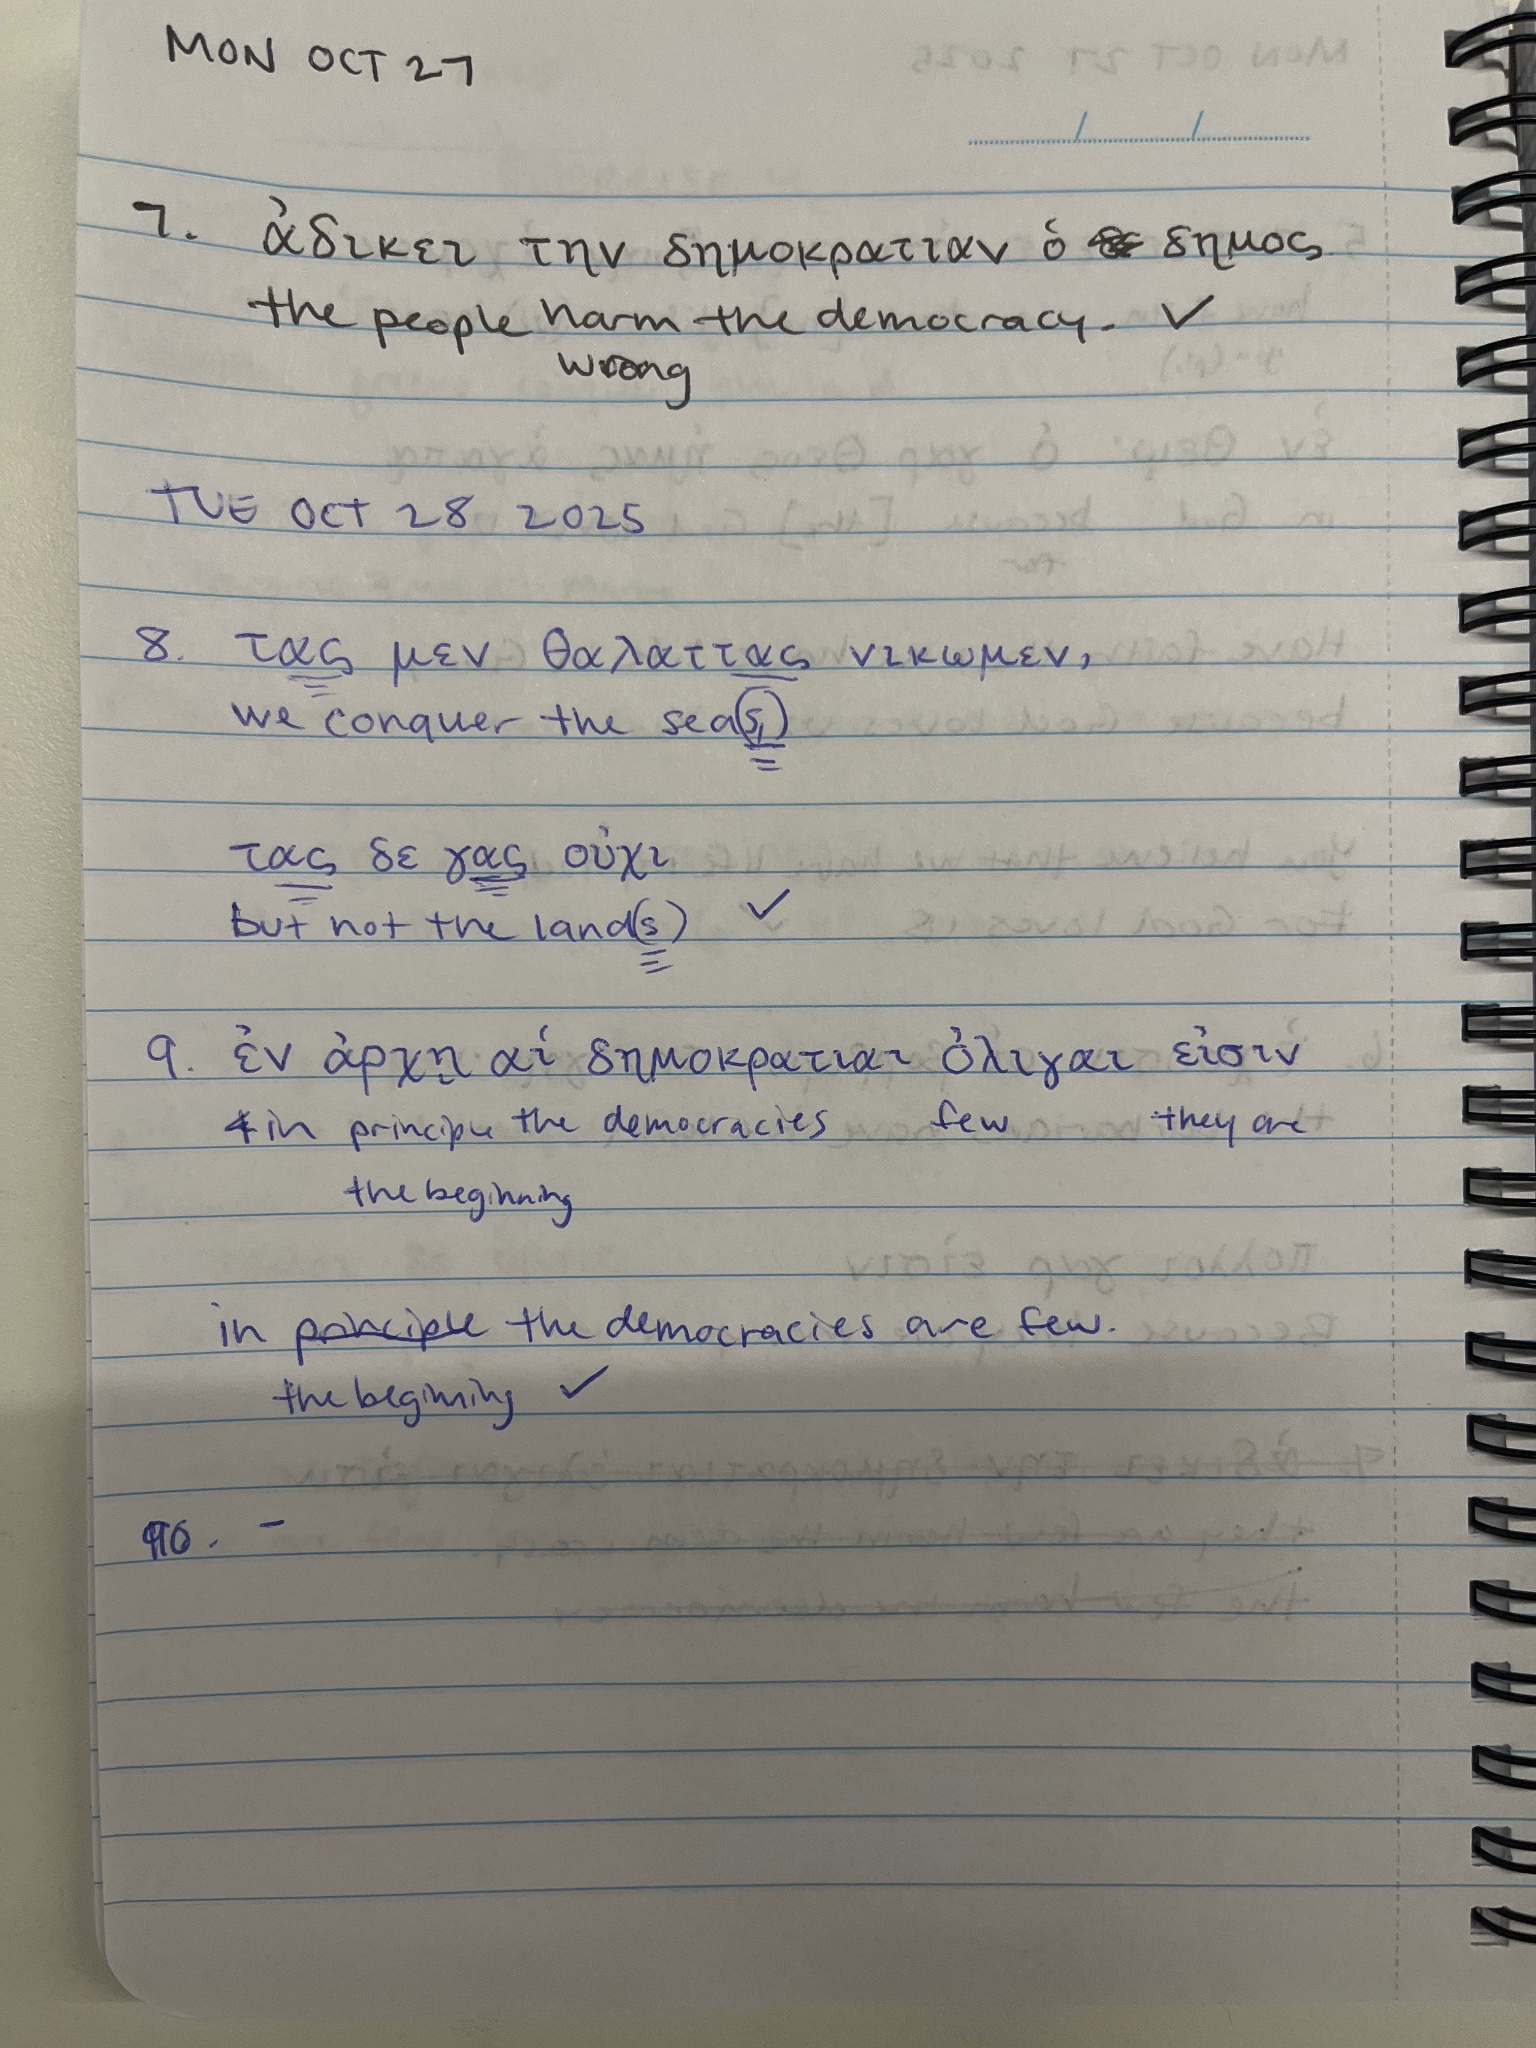 MON OCT 27
7. ἀδικει την δημοκρατιαν ὁ δημος
the people harm the democracy. ✓
wrong
TUE OCT 28 2025
8. τας μεν θαλαττας νικωμεν,
we conquer the sea(s,)
τας δε γας οὐχι
but not the land(s) ✓
9. ἐν ἀρχῃ αἱ δημοκρατιαι ὀλιγαι εἰσιν
in principle the democracies few they are
the beginning
in principle the democracies are few.
the beginning ✓
10. -